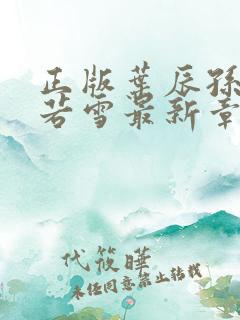 正版葉辰孫
若雪最新章
代筱曄
未经同意禁止转载